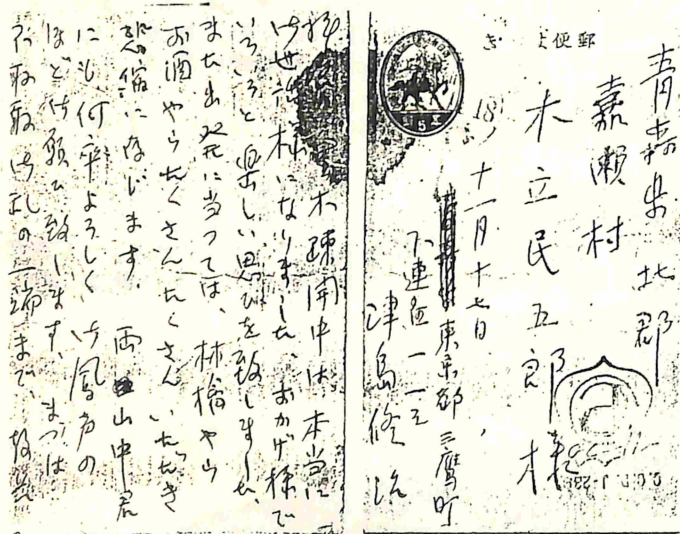 郵便
青森県北郡
嘉瀬村
木立民五郎様
十一月十七日
東京都三鷹町
下連雀一一三
津島修治
疎開中は、本当に
お世話様になりました、おかげ様で
いろいろと楽しい思ひを致しました、
また出発に当つては、林檎やら
お酒やらたくさんたくさんいただき
恐縮に存じます、両山中君
にも何卒よろしく御鳳声の
ほどお願ひ致します、まづは
御礼の一端まで、敬具